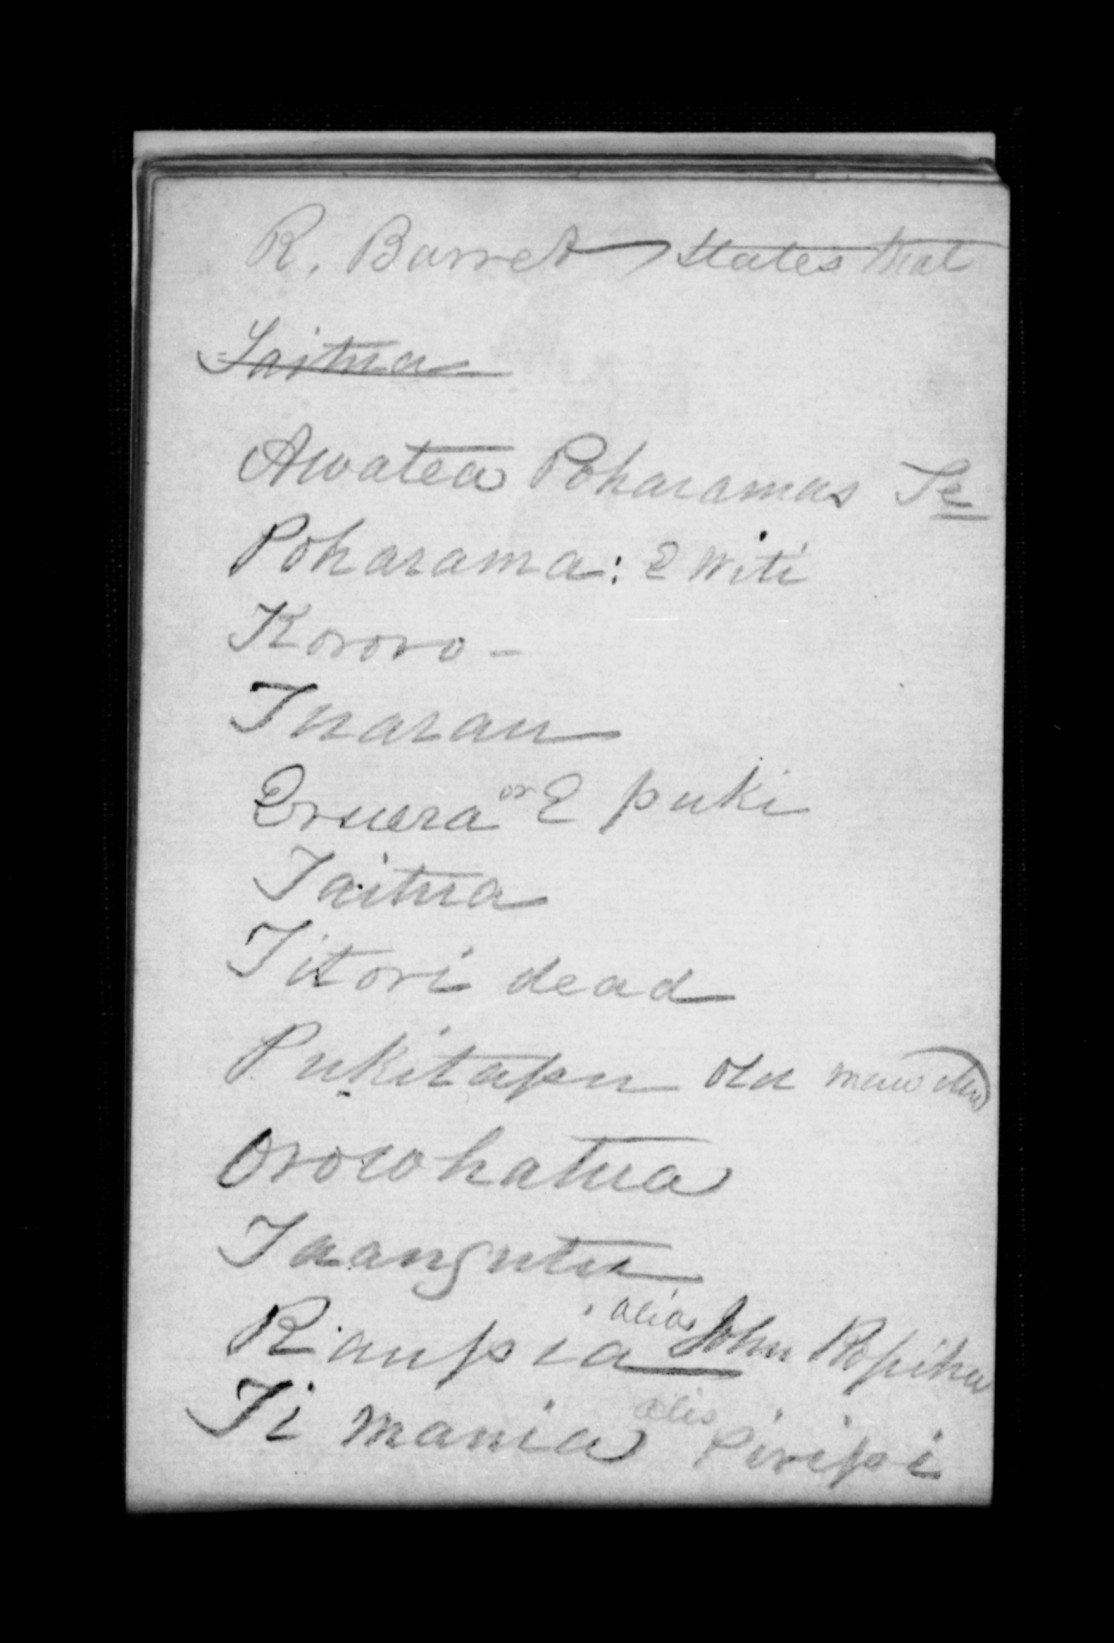 R. Barret states that
Taitua
Awatea Poharamas Te
Poharama: E Witi
Kororo -
Tuarau
Eruera or E puki
Taitua
Titori dead
Pukitapu Old man
Orowhatua
Taangutu
Raupia alias John Ropiha
Ti mania alis Piripi